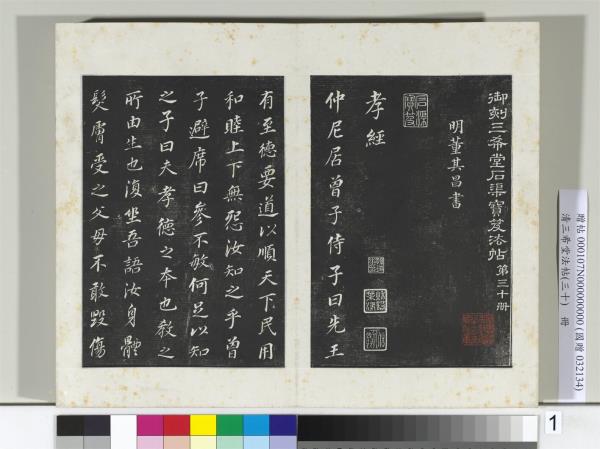 御刻三希堂石渠寶笈法帖第三十册
明董其昌書
石渠寶笈
孝經
仲尼居曾子侍子曰先王
有至德要道以順天下民用
和睦上下無怨汝知之乎曾
子避席曰參不敏何足以知
之子曰夫孝德之本也教之
所由生也復坐吾語汝身體
髮膚受之父母不敢毀傷
贈帖 000107N000000000 (國贈 032134)
清三希堂法帖(三十) 冊
1